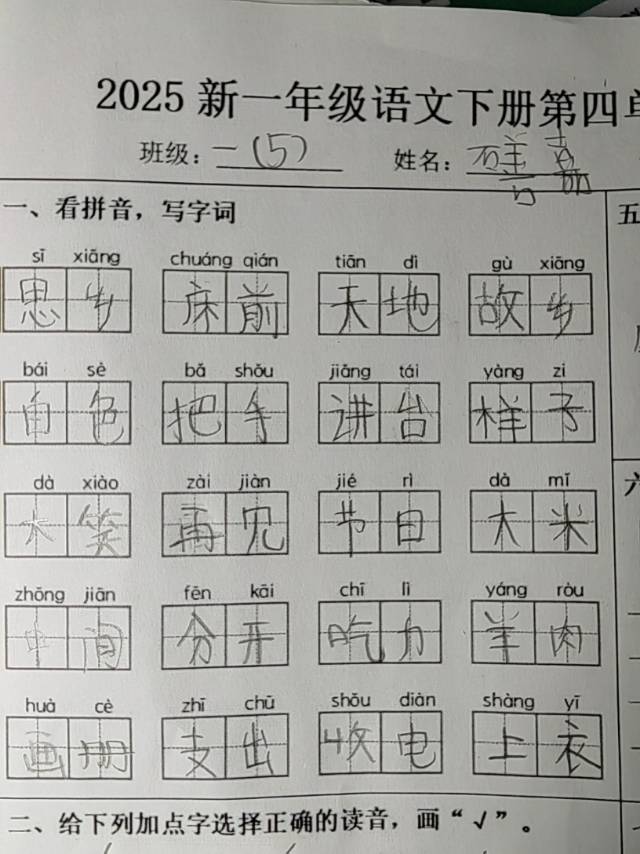 2025 新一年级语文下册第四单
班级：一（5） 姓名：
一、看拼音，写字词
五
sī xiāng chuáng qián tiān dì gù xiāng
思 乡 床 前 天 地 故 乡
bái sè bǎ shǒu jiǎng tái yàng zi
白 色 把 手 讲 台 样 子
dà xiào zài jiàn jié rì dà mǐ
大 笑 再 见 节 日 大 米
六
zhōng jiān fēn kāi chī lì yáng ròu
中 间 分 开 吃 力 羊 肉
huà cè zhī chū shōu diàn shàng yī
画 册 支 出 收 电 上 衣
二、给下列加点字选择正确的读音，画“√”。